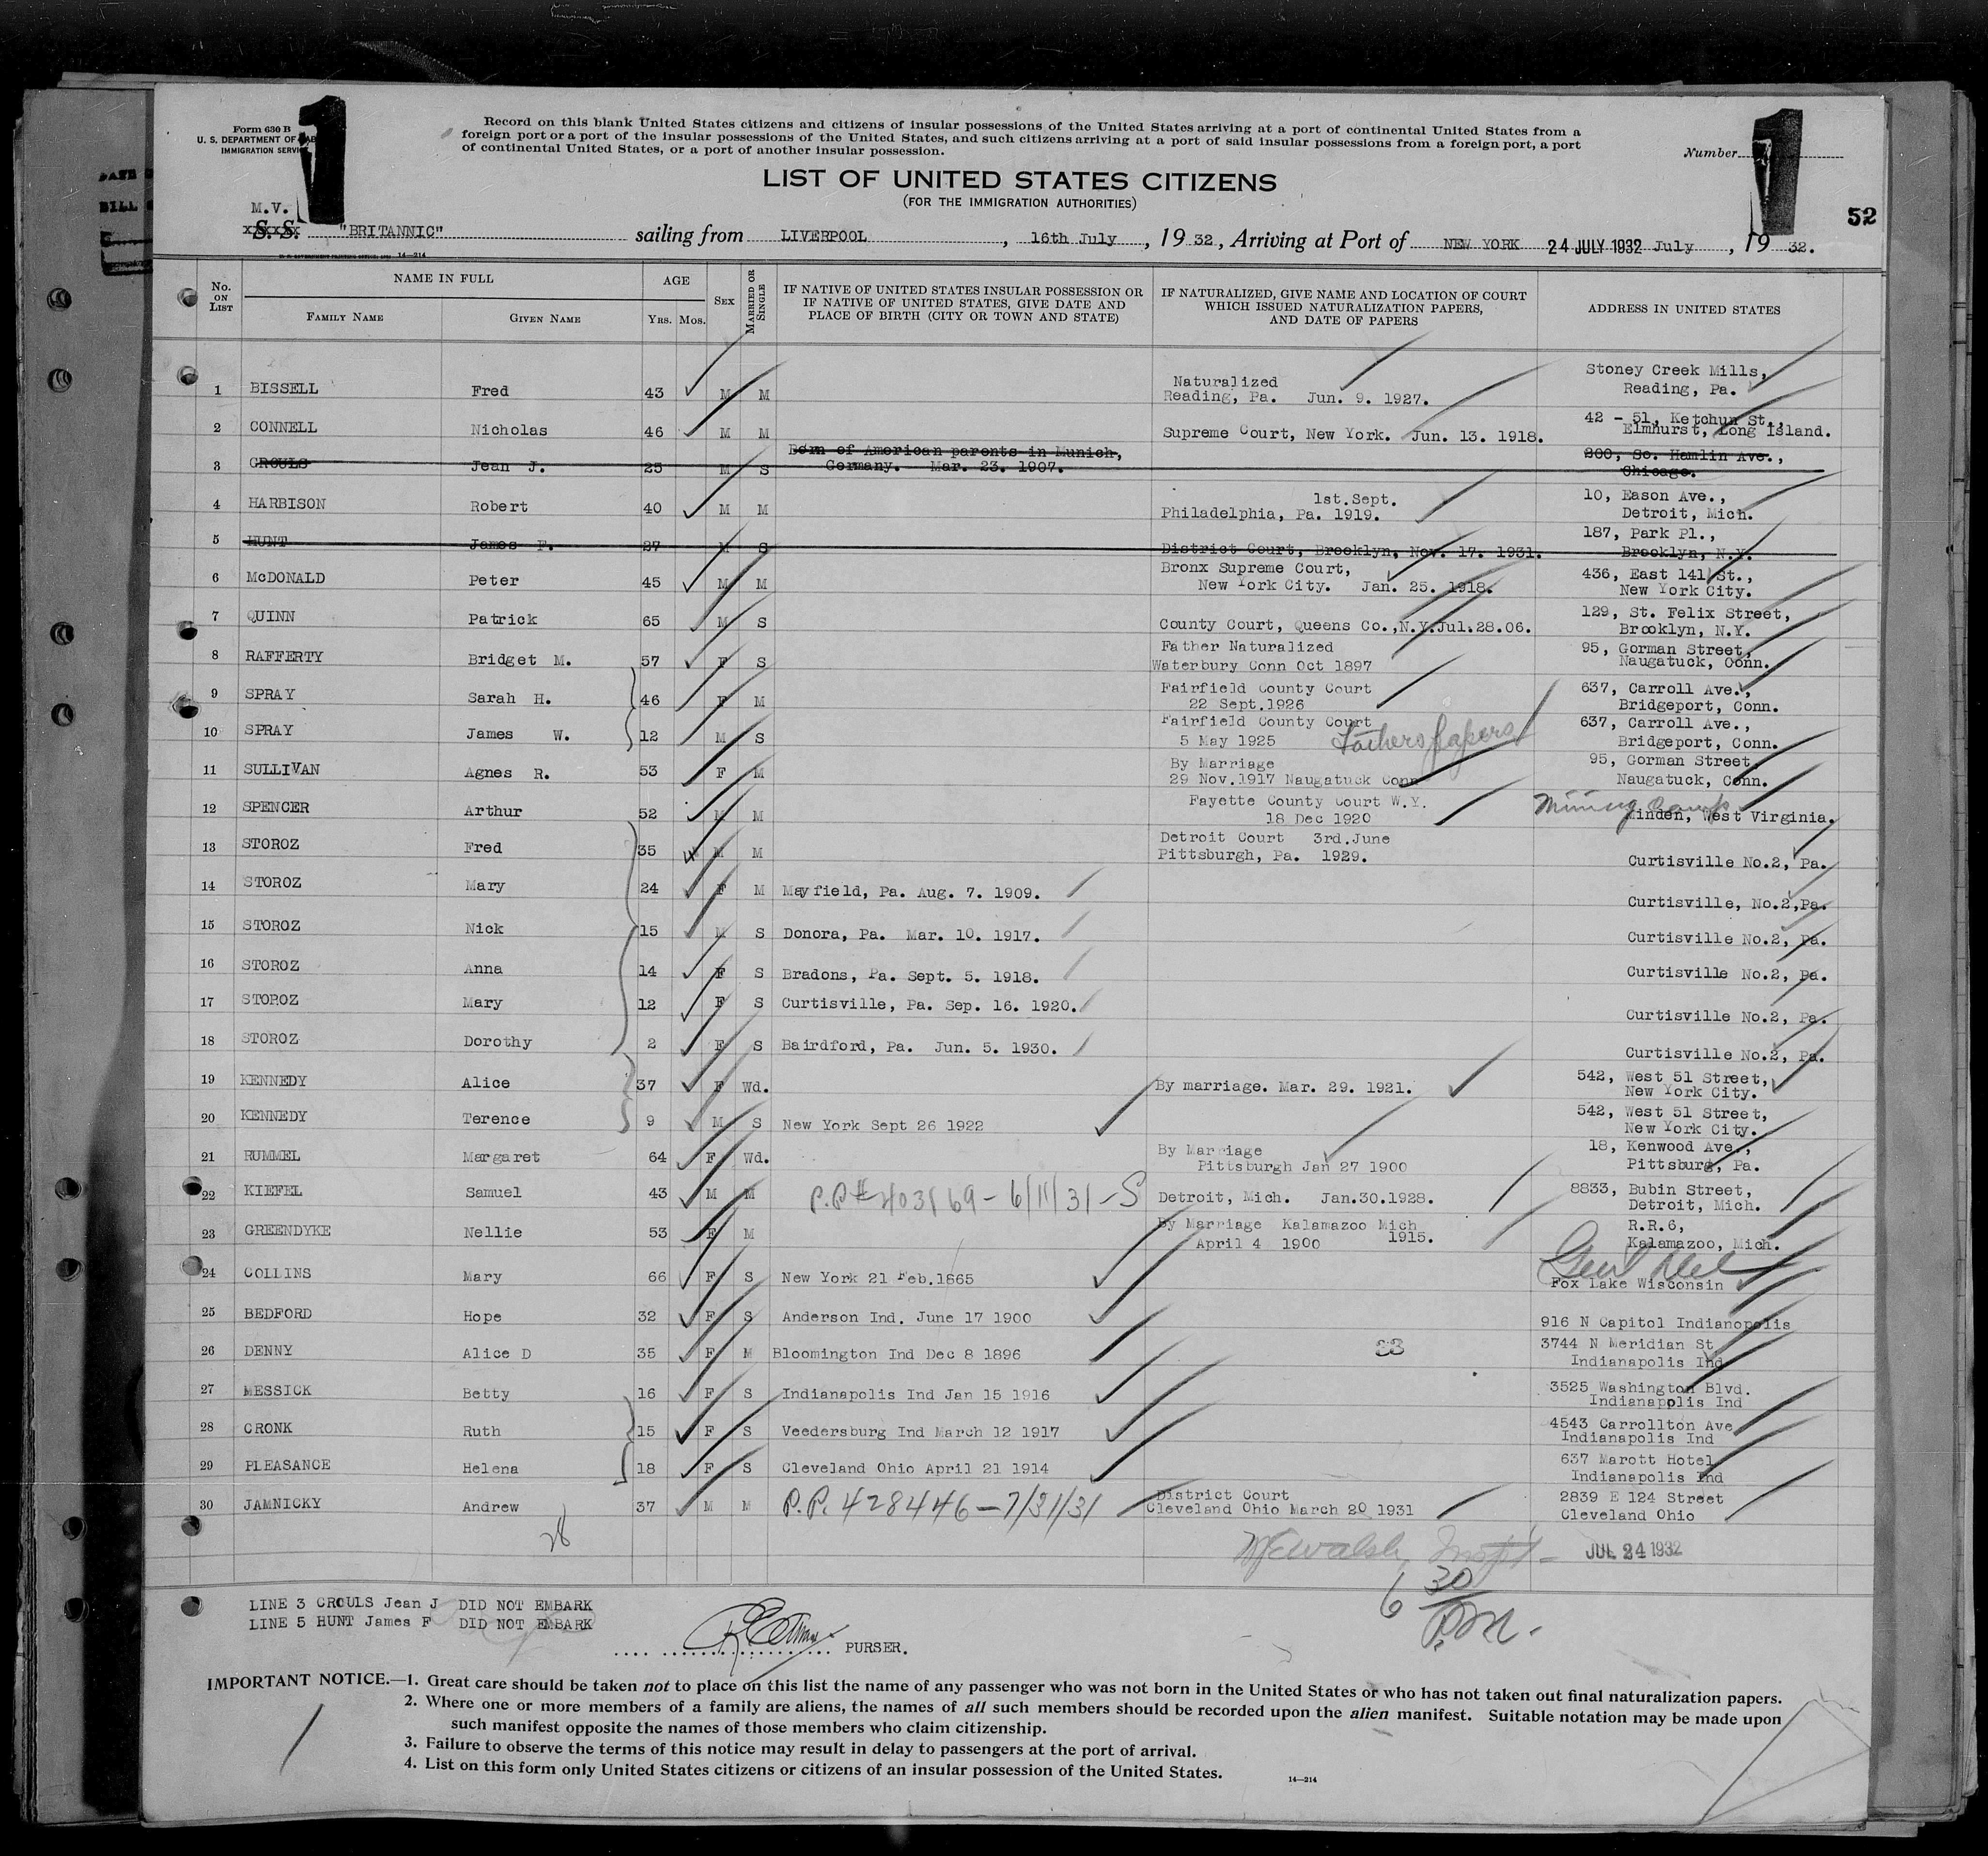 Form 630 B
U. S. DEPARTMENT OF
IMMIGRATION SERVICE
1
Record on this blank United States citizens and citizens of insular possessions of the United States arriving at a port of continental United States from a
foreign port or a port of the insular possessions of the United States, and such citizens arriving at a port of said insular possessions from a foreign port, a port
of continental United States, or a port of another insular possession.
Number 1
LIST OF UNITED STATES CITIZENS
(FOR THE IMMIGRATION AUTHORITIES)
52
M.V.
S. S. "BRITANNIC" sailing from LIVERPOOL, 16th July, 19 32, Arriving at Port of NEW YORK 24 JULY 1932 July, 19 32.
14—214
No. ON LIST
NAME IN FULL
FAMILY NAME
GIVEN NAME
AGE
YRS. MOS.
SEX
MARRIED OR SINGLE
IF NATIVE OF UNITED STATES INSULAR POSSESSION OR
IF NATIVE OF UNITED STATES, GIVE DATE AND
PLACE OF BIRTH (CITY OR TOWN AND STATE)
IF NATURALIZED, GIVE NAME AND LOCATION OF COURT
WHICH ISSUED NATURALIZATION PAPERS,
AND DATE OF PAPERS
ADDRESS IN UNITED STATES
1 BISSELL Fred 43 M M Naturalized Reading, Pa. Jun. 9. 1927. Stoney Creek Mills, Reading, Pa.
2 CONNELL Nicholas 46 M M Supreme Court, New York. Jun. 13. 1918. 42 - 51, Ketchum St., Elmhurst, Long Island.
3 CROULS Jean J. 25 M S Born of American parents in Munich, Germany. Mar. 23. 1907. 200, So. Hamlin Ave., Chicago.
4 HARBISON Robert 40 M M 1st.Sept. Philadelphia, Pa. 1919. 10, Eason Ave., Detroit, Mich.
5 HUNT James F. 27 M S District Court, Brooklyn, Nov. 17. 1931. 187, Park Pl., Brooklyn, N.Y.
6 McDONALD Peter 45 M M Bronx Supreme Court, New York City. Jan. 25. 1918. 436, East 141 St., New York City.
7 QUINN Patrick 65 M S County Court, Queens Co.,N.Y.Jul.28.06. 129, St. Felix Street, Brooklyn, N.Y.
8 RAFFERTY Bridget M. 57 F S Father Naturalized Waterbury Conn Oct 1897 95, Gorman Street, Naugatuck, Conn.
9 SPRAY Sarah H. 46 F M Fairfield County Court 22 Sept.1926 637, Carroll Ave., Bridgeport, Conn.
10 SPRAY James W. 12 M S Fairfield County Court 5 May 1925 Fathers papers 637, Carroll Ave., Bridgeport, Conn.
11 SULLIVAN Agnes R. 53 F M By Marriage 29 Nov.1917 Naugatuck Conn 95, Gorman Street, Naugatuck, Conn.
12 SPENCER Arthur 52 M M Fayette County Court W.Y. 18 Dec 1920 Mining Camp Minden, West Virginia.
13 STOROZ Fred 35 M M Detroit Court 3rd.June Pittsburgh, Pa. 1929. Curtisville No.2, Pa.
14 STOROZ Mary 24 F M Mayfield, Pa. Aug. 7. 1909. Curtisville, No.2,Pa.
15 STOROZ Nick 15 M S Donora, Pa. Mar. 10. 1917. Curtisville No.2, Pa.
16 STOROZ Anna 14 F S Bradons, Pa. Sept. 5. 1918. Curtisville No.2, Pa.
17 STOROZ Mary 12 F S Curtisville, Pa. Sep. 16. 1920. Curtisville No.2, Pa.
18 STOROZ Dorothy 2 F S Bairdford, Pa. Jun. 5. 1930. Curtisville No.2, Pa.
19 KENNEDY Alice 37 F Wd. By marriage. Mar. 29. 1921. 542, West 51 Street, New York City.
20 KENNEDY Terence 9 M S New York Sept 26 1922 542, West 51 Street, New York City.
21 RUMMEL Margaret 64 F Wd. By Marriage Pittsburgh Jan 27 1900 18, Kenwood Ave., Pittsburg, Pa.
22 KIEFEL Samuel 43 M M P.P# 403169 - 6/11/31 - S Detroit, Mich. Jan.30.1928. 8833, Bubin Street, Detroit, Mich.
23 GREENDYKE Nellie 53 F M By Marriage Kalamazoo Mich April 4 1900 1915. R.R.6, Kalamazoo, Mich.
24 COLLINS Mary 66 F S New York 21 Feb.1865 Genl Del Fox Lake Wisconsin
25 BEDFORD Hope 32 F S Anderson Ind. June 17 1900 916 N Capitol Indianopolis
26 DENNY Alice D 35 F M Bloomington Ind Dec 8 1896 3744 N Meridian St Indianapolis Ind
27 MESSICK Betty 16 F S Indianapolis Ind Jan 15 1916 3525 Washington Blvd. Indianapolis Ind
28 CRONK Ruth 15 F S Veedersburg Ind March 12 1917 4543 Carrollton Ave Indianapolis Ind
29 PLEASANCE Helena 18 F S Cleveland Ohio April 21 1914 637 Marott Hotel Indianapolis Ind
30 JAMNICKY Andrew 37 M M P.P. 428446 - 7/31/31 District Court Cleveland Ohio March 20 1931 2839 E 124 Street Cleveland Ohio
28
Walsh Inspt JUL 24 1932
6 30 P.M.
LINE 3 CROULS Jean J DID NOT EMBARK
LINE 5 HUNT James F DID NOT EMBARK
PURSER.
IMPORTANT NOTICE.—1. Great care should be taken not to place on this list the name of any passenger who was not born in the United States or who has not taken out final naturalization papers.
2. Where one or more members of a family are aliens, the names of all such members should be recorded upon the alien manifest. Suitable notation may be made upon
such manifest opposite the names of those members who claim citizenship.
3. Failure to observe the terms of this notice may result in delay to passengers at the port of arrival.
4. List on this form only United States citizens or citizens of an insular possession of the United States.
14—214